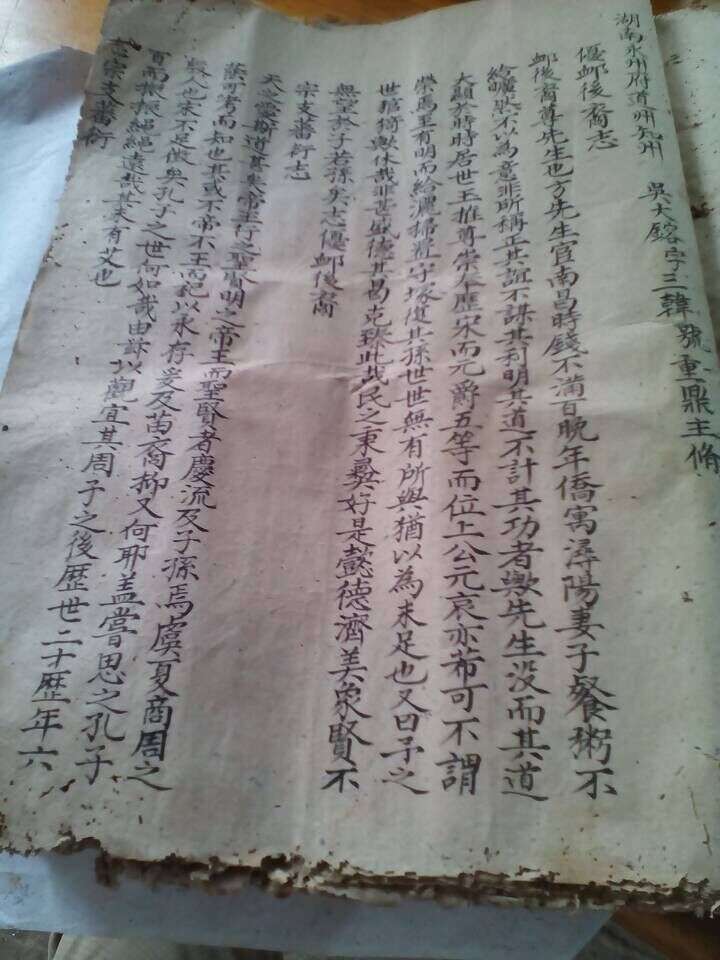 湖南永州府道州九州　吳大鎔字三韓號重鼎主脩
優邮後裔志
邮後裔尊先生也方先生官南昌時錢不滿百晚年僑寓潯陽妻子餐粥不
給曠然不以為意非所稱正其誼不謀其利明其道不計其功者與先生沒而其道
大顯於時時居世王推尊崇奉歷宋而元爵五等而位上公元哀亦希可不謂
榮焉至有明而給灑掃置守塚復其孫世世無有所與猶以為未足也又曰予之
世猗與休哉非甚盛德其曷克臻此哉民之秉彝好是懿德濟美象賢不
無望於子若孫矣志優邮後裔
宗支蕃衍志
天之愛斯道甚矣帝王行之聖賢明之帝王而聖賢者慶流及子孫焉虞夏商周之
蔭可考而知也其或不帝不王而祀以永存爰及苗裔抑又何耶盖嘗思之孔子
殷人也宋不足徵矣孔子之世何如哉由訴以觀宜其周子之後歷世二十歷年六
百而振振繩繩遠哉其未有艾也
志宗支蕃衍